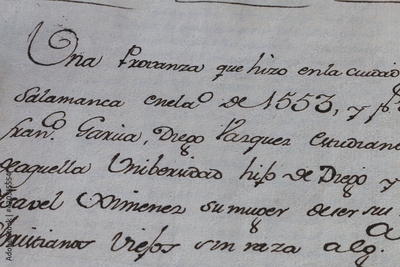 Una Provanza que hizo enla ciudad
Salamanca enel aº de 1553, y pr
Franco Garcia, Diego Vazquez estudian
deaquella Unibersidad hijo de Diego y
Ximenez su muger de ser sus
christianos Viejos sin raza alg.